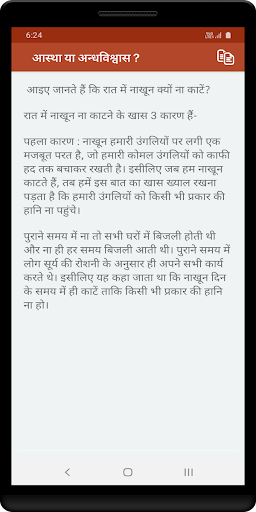 6:24
आस्था या अन्धविश्वास ?
आइए जानते हैं कि रात में नाखून क्यों ना काटें?
रात में नाखून ना काटने के खास 3 कारण हैं-
पहला कारण : नाखून हमारी उंगलियों पर लगी एक
मजबूत परत है, जो हमारी कोमल उंगलियों को काफी
हद तक बचाकर रखती है। इसीलिए जब हम नाखून
काटते हैं, तब हमें इस बात का खास ख्याल रखना
पड़ता है कि हमारी उंगलियों को किसी भी प्रकार की
हानि ना पहुंचे।
पुराने समय में ना तो सभी घरों में बिजली होती थी
और ना ही हर समय बिजली आती थी। पुराने समय में
लोग सूर्य की रोशनी के अनुसार ही अपने सभी कार्य
करते थे। इसीलिए यह कहा जाता था कि नाखून दिन
के समय में ही काटें ताकि किसी भी प्रकार की हानि
ना हो।